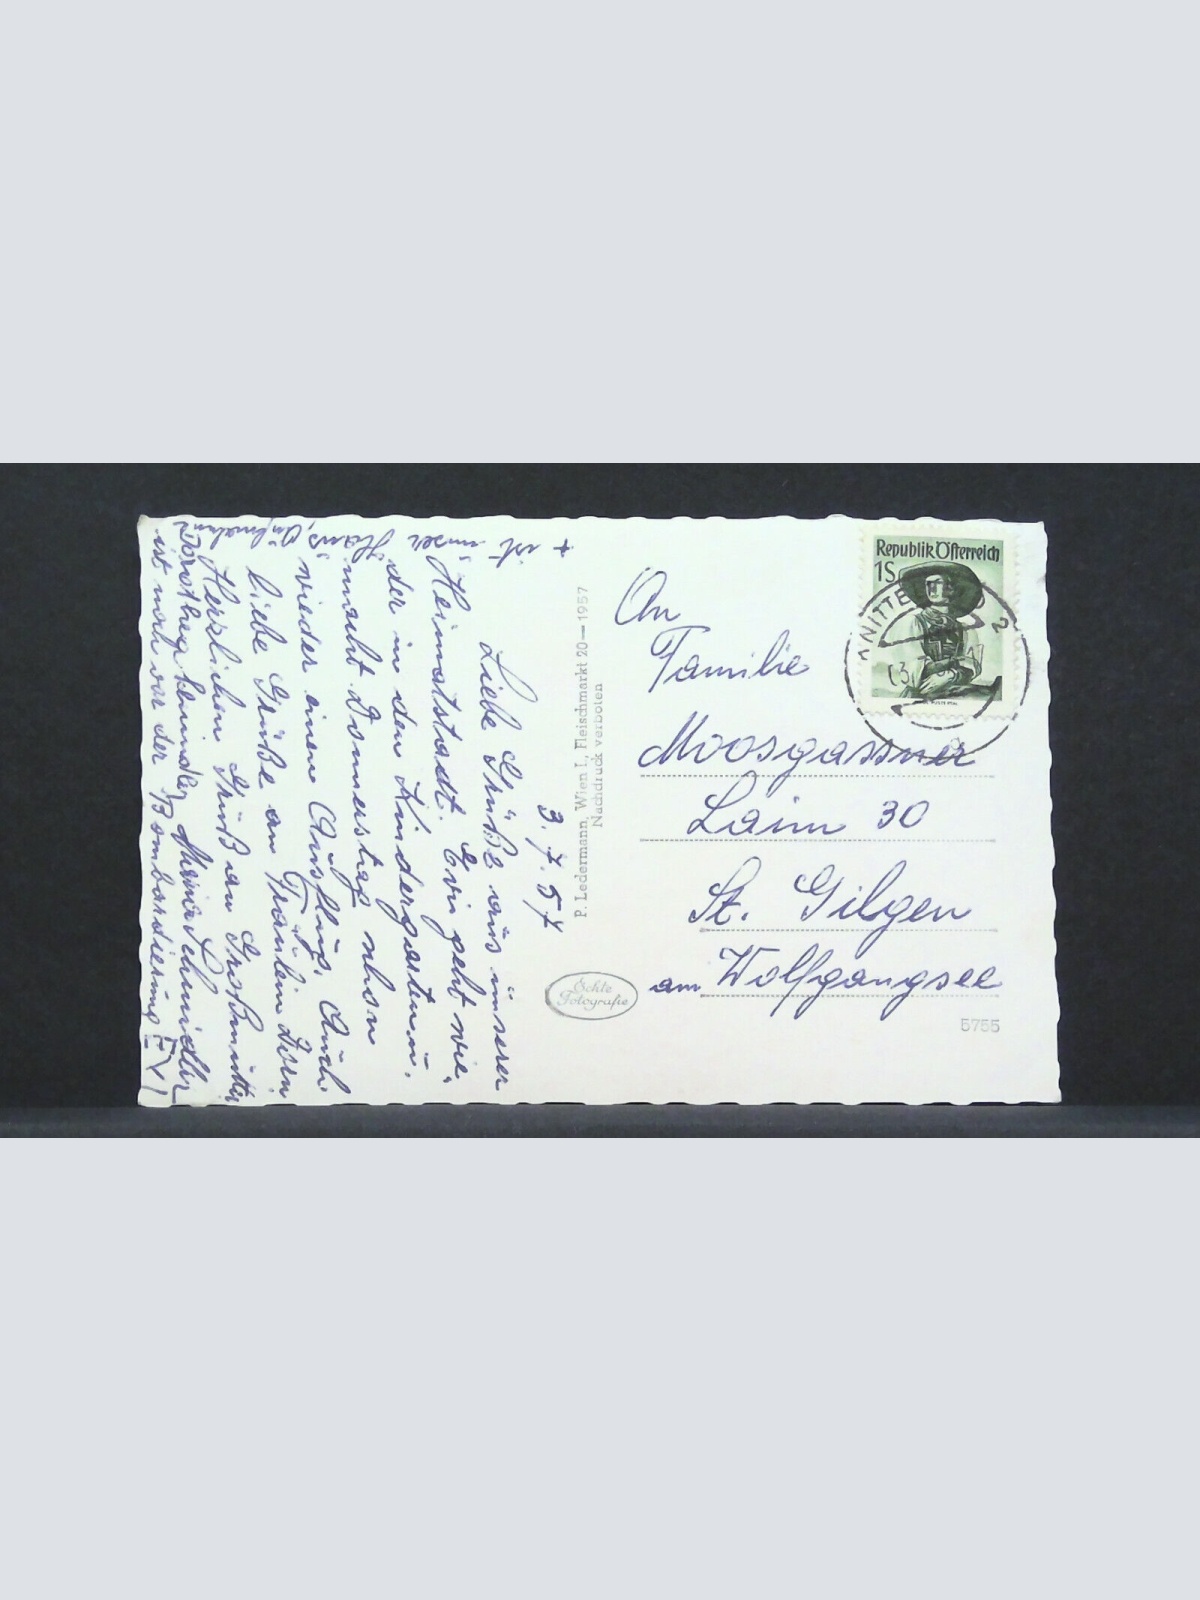 3. 7. 57
Liebe Grüße aus unserer
Heimatstadt. Evi geht wie,
der in den Kindergarten u.
macht Donnerstag schon
wieder einen Ausflug. Auch
liebe Grüße an Fräulein Dorn
Herzlichen Gruß an Großmutter
ist noch vor der Bombardierung
+ ist unser Haus,
P. Ledermann, Wien I., Fleischmarkt 20—1957
Nachdruck verboten
Echte
Fotografie
Republik Österreich
1S
KNITTE
2
An
Familie
Moosgassner
Laim 30
St. Gilgen
am Wolfgangsee
5755